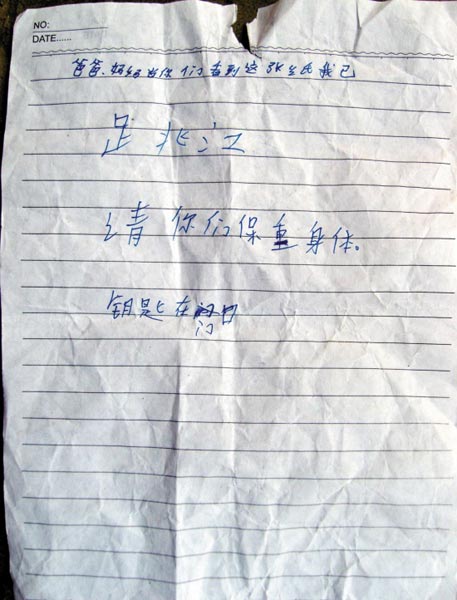 NO:
DATE......
爸爸、妈妈当你们看到这张纸我已
足 兆 江
请你们保重身体。
钥匙在门口